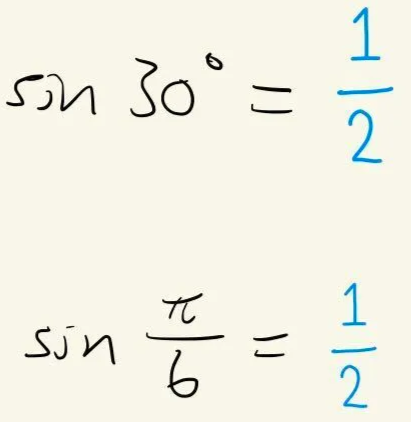 sin 30° = 1/2
sin π/6 = 1/2